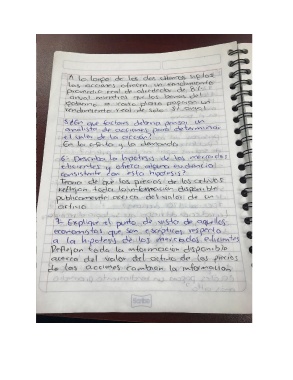 A lo largo de los dos últimos siglos
las acciones ofrecen un rendimiento
promedio real de alrededor de 8%
anual mientras que los bonos del
gobierno a corto plazo pagaron un
rendimiento real de solo 3% anual
5¿En que factores debería pensar un
analista de acciones para determinar
el valor de la acción?
En la oferta y la demanda
6- Describa la hipótesis de los mercados
eficientes y ofrezca alguna evidencia
consistente con esta hipótesis?
Trata de que los precios de los activos
reflejan toda la información disponible
públicamente acerca del valor de un
activo
7- Explique el punto de vista de aquellos
economistas que son escépticos respecto
a la hipótesis de los mercados eficientes
Reflejan toda la información disponible
acerca del valor del activo de los precios
de las acciones cambian la información